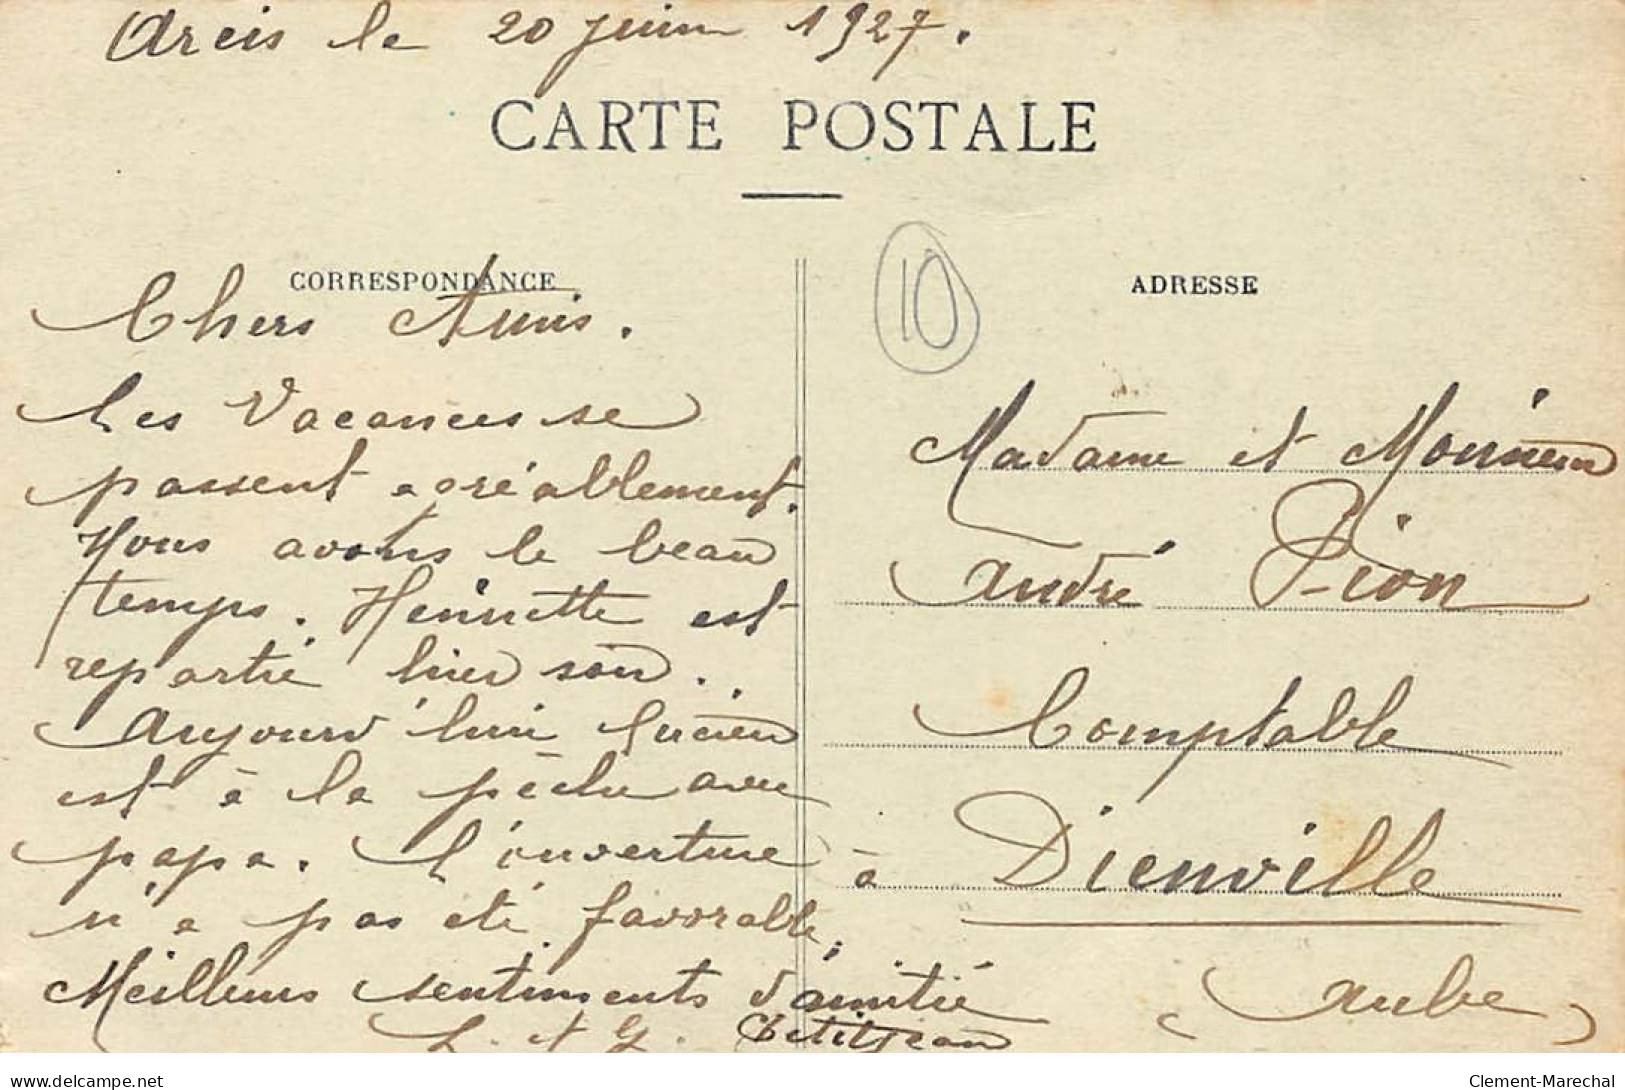 Arcis le 20 juin 1927.
CARTE POSTALE
CORRESPONDANCE
ADRESSE
10
Chers Amis.
Les Vacances se
passent agréablement.
Nous avons le beau
temps. Henriette est
repartie hier soir.
Aujourd'hui Lucien
est à la pêche avec
papa. L'ouverture
n'a pas été favorable.
Meilleurs sentiments d'amitié
L. et G. Petitjean
Madame et Monsieur
André Pion
Comptable
à Dienville
(Aube)
delcampe.net
Clement-Marechal